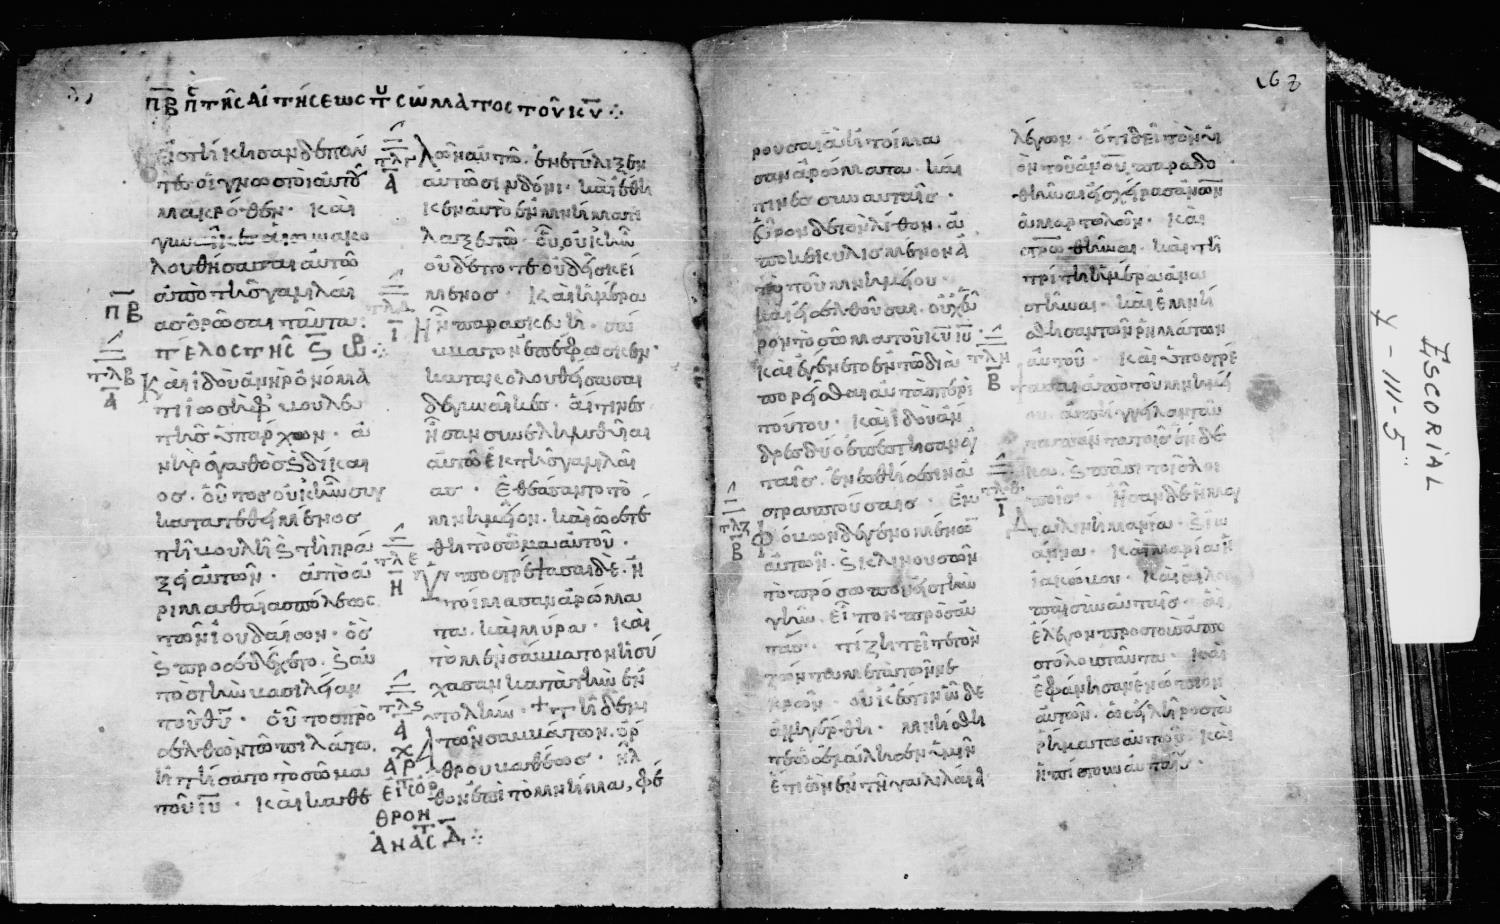 π̅β̅ π τῆς αἰτήσεως τοῦ σώματος τοῦ κ̅υ̅ ⁘
εἱστήκεισαν δὲ πάν
τες οἱ γνωστοὶ αὐτοῦ
μακρόθεν · καὶ
γυναῖκες αἱ συνακο
λουθήσασαι αὐτῶ
ἀπὸ τῆς γαλιλαί
π̅β̅
ας ὁρῶσαι ταῦτα :
τέλος τῆς
τλβ
α
Καὶ ἰδοὺ ἀνὴρ ὀνόμα
τι ἰωσὴφ βουλευ
τὴς ὑπάρχων · ἀ
νὴρ ἀγαθὸς ϗ δίκαι
ος · οὗτος οὐκ ἦν συγ
κατατεθειμένος
τῆ βουλῆ ϗ τῆ πρά
ξει αὐτῶν · ἀπὸ ἀ
ριμαθαίας πόλεως
τῶν ἰουδαίων · ὃς
ϗ προσεδέχετο · ϗ αὐ
τὸς τὴν βασιλείαν
τοῦ θ̅υ̅ · οὗτος προ
σελθὼν τῶ πιλάτω
ἠτήσατο τὸ σῶμα
τοῦ ι̅υ̅ · καὶ καθε
τλγ
α
λὼν αὐτὸ · ἐνετύλιξεν
αὐτὸ σινδόνι · καὶ ἔθη
κεν αὐτὸ ἐν μνήματι
λαξευτῶ · οὗ οὐκ ἦν
οὐδέποτε οὐδεὶς κεί
μενος · Καὶ ἡμέρα
τλδ
ι
ἦν παρασκευὴ · σά
ββατον ἐπέφωσκεν ·
κατακολουθήσασαι
δὲ γυναῖκες · αἵτινες
ἦσαν συνεληλυθυῖαι
αὐτῶ ἐκ τῆς γαλιλαί
ας · ἐθεάσαντο τὸ
μνημεῖον · καὶ ὡς ἐτέ
θη τὸ σῶμα αὐτοῦ ·
τλε
η
Ὑποστρέψασαι δὲ · ἡ
τοίμασαν ἀρώμα
τα · καὶ μύρα · καὶ
τὸ μὲν σάββατον ἡσύ
χασαν κατὰ τὴν ἐν
τλς
α
τολήν · + τῆ δὲ μιᾶ
τῶν σαββάτων · ὄρ
θρου βαθέως · ἦλ
θον ἐπὶ τὸ μνῆμα, φέ
θρον
ἀναστ δ ⁘
168
ρουσαι ἃ ἡτοίμα
σαν ἀρώματα · καί
τινες σὺν αὐταῖς ·
εὗρον δὲ τὸν λίθον · ἀ
ποκεκυλισμένον ἀ
πὸ τοῦ μνημείου ·
καὶ εἰσελθοῦσαι · οὐχ εὗ
ρον τὸ σῶμα τοῦ κ̅υ̅ ι̅υ̅ ·
καὶ ἐγένετο ἐν τῶ δια
πορεῖσθαι αὐτὰς περὶ
τούτου · καὶ ἰδοὺ ἄν
δρες δύο ἐπέστησαν αὐ
ταῖς · ἐν ἐσθήσεσιν ἀ
στραπτούσαις · Ἐμ
τλζ
β
φόβων δὲ γενομένων
αὐτῶν · ϗ κλινουσῶν
τὸ πρόσωπον εἰς τὴν
γῆν · εἶπον πρὸς αὐ
τάς · τί ζητεῖτε τὸν
ζῶντα μετὰ τῶν νε
κρῶν · οὐκ ἔστιν ὧδε
ἀλλ' ἠγέρθη · μνήσθη
τε ὡς ἐλάλησεν ὑμῖν
ἔτι ὢν ἐν τῆ γαλιλαία
λέγων · ὅτι δεῖ τὸν υἱ
ὸν τοῦ ἀνου παραδο
θῆναι εἰς χεῖρας ἀνων
ἁμαρτωλῶν · καὶ
στρωθῆναι · καὶ τῆ
τρίτη ἡμέρα ἀνα
στῆναι · καὶ ἐμνή
σθησαν τῶν ῥημάτων
τλη
β
αὐτοῦ · καὶ ὑποστρέ
ψασαι ἀπὸ τοῦ μνημεί
ου · ἀπήγγειλαν ταῦ
τα πάντα τοῖς ἕνδε
κα · ϗ πᾶσι τοῖς λοι
τλθ
ι
ποῖς · ἦσαν δὲ ἡ μαγ
δαληνὴ μαρία · ϗ ἰω
άννα · καὶ μαρία ἡ
ἰακώβου · καὶ αἱ λοι
παὶ σὺν αὐταῖς · αἳ
ἔλεγον πρὸς τοὺς ἀπο
στόλους ταῦτα · καὶ
ἐφάνησαν ἐνώπιον
αὐτῶν · ὡσεὶ λῆρος τὰ
ῥήματα αὐτῶν · καὶ
ἠπίστουν αὐταῖς ·
ESCORIAL
Ψ-III-5